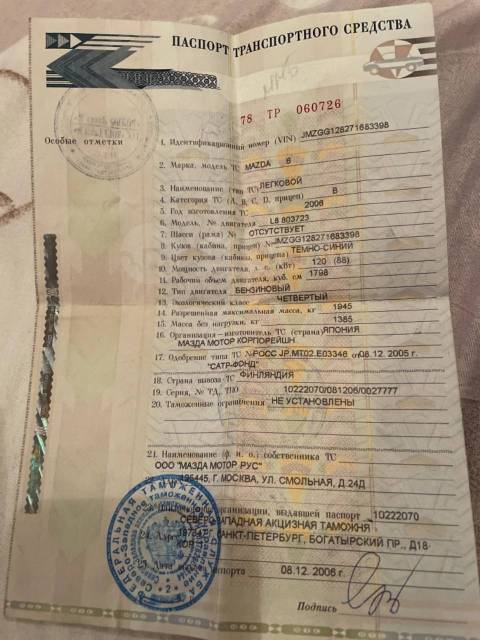 ПАСПОРТ ТРАНСПОРТНОГО СРЕДСТВА
78 ТР 060726
Особые отметки
1. Идентификационный номер (VIN) JMZGG128271683398
2. Марка, модель ТС MAZDA 6
3. Наименование (тип ТС) ЛЕГКОВОЙ
4. Категория ТС (А, В, С, D, прицеп) B
5. Год изготовления ТС 2006
6. Модель, № двигателя L8 803723
7. Шасси (рама) № ОТСУТСТВУЕТ
8. Кузов (кабина, прицеп) № JMZGG128271683398
9. Цвет кузова (кабины, прицепа) ТЕМНО-СИНИЙ
10. Мощность двигателя, л. с. (кВт) 120 (88)
11. Рабочий объем двигателя, куб. см 1798
12. Тип двигателя БЕНЗИНОВЫЙ
13. Экологический класс ЧЕТВЕРТЫЙ
14. Разрешенная максимальная масса, кг 1945
15. Масса без нагрузки, кг 1385
16. Организация-изготовитель ТС (страна) ЯПОНИЯ
МАЗДА МОТОР КОРПОРЕЙШН
17. Одобрение типа ТС № РОСС JP.MT02.E03346 от 08.12.2005 г.
"САТР-ФОНД"
18. Страна вывоза ТС ФИНЛЯНДИЯ
19. Серия, № ТД, 10222070/081206/0027777
20. Таможенные ограничения НЕ УСТАНОВЛЕНЫ
21. Наименование (ф. и. о.) собственника ТС
ООО "МАЗДА МОТОР РУС"
125445, Г. МОСКВА, УЛ. СМОЛЬНАЯ, Д.24Д
организации, выдавшей паспорт 10222070
СЕВЕРО-ЗАПАДНАЯ АКЦИЗНАЯ ТАМОЖНЯ
САНКТ-ПЕТЕРБУРГ, БОГАТЫРСКИЙ ПР., Д18
КОР
паспорта 08.12.2006 г.
Подпись